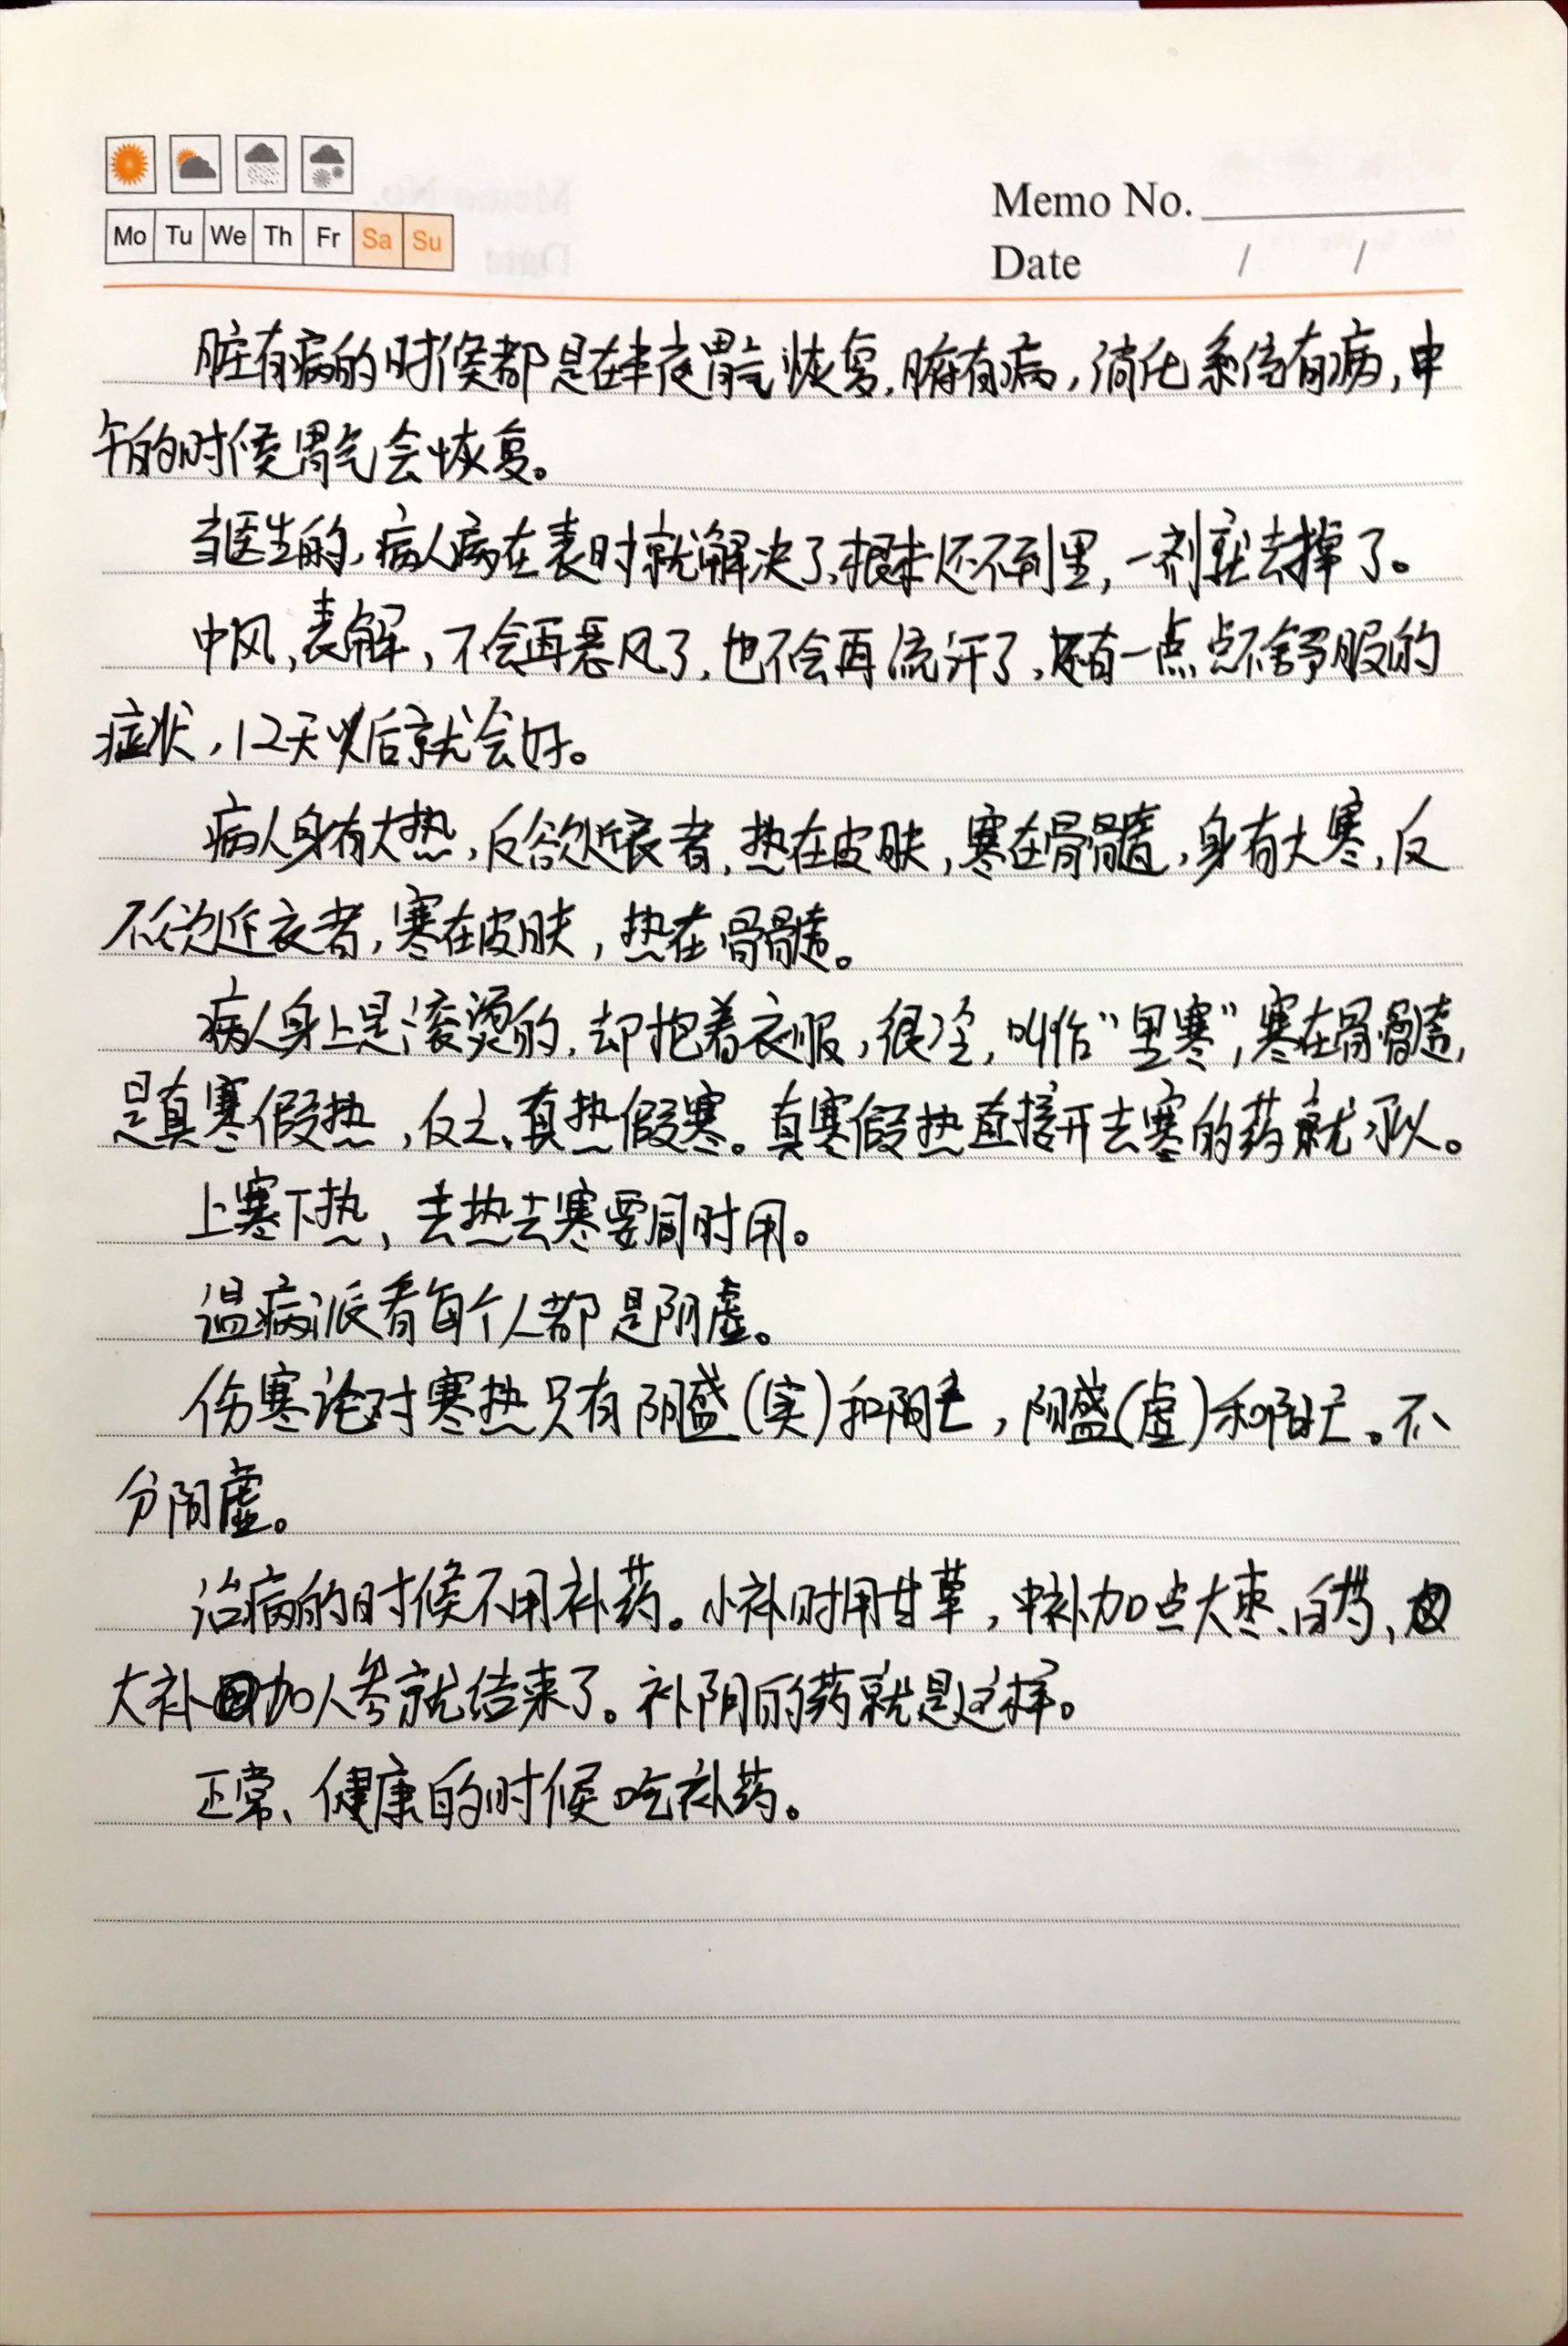 Memo No.
Mo Tu We Th Fr Sa Su
Date / /
脏有病的时候都是在半夜胃气恢复,腑有病,消化系统有病,中
午的时候胃气会恢复。
当医生的,病人病在表时就解决了,根本还不到里,一剂就去掉了。
中风,表解,不会再恶风了,也不会再流汗了,还有一点点不舒服的
症状,12天以后就会好。
病人身有大热,反欲近衣者,热在皮肤,寒在骨髓,身有大寒,反
不欲近衣者,寒在皮肤,热在骨髓。
病人身上是滚烫的,却抱着衣服,很冷,叫作“里寒”,寒在骨髓,
是真寒假热,反之,真热假寒。真寒假热直接开去寒的药就可以。
上寒下热,去热去寒要同时用。
温病派看每个人都是阴虚。
伤寒论对寒热只有阴盛(实)和阴亡,阳盛(虚)和阳亡。不
分阴虚。
治病的时候不用补药。小补时用甘草,中补加点大枣、白芍,
大补加人参就结束了。补阴的药就是这样。
正常、健康的时候吃补药。